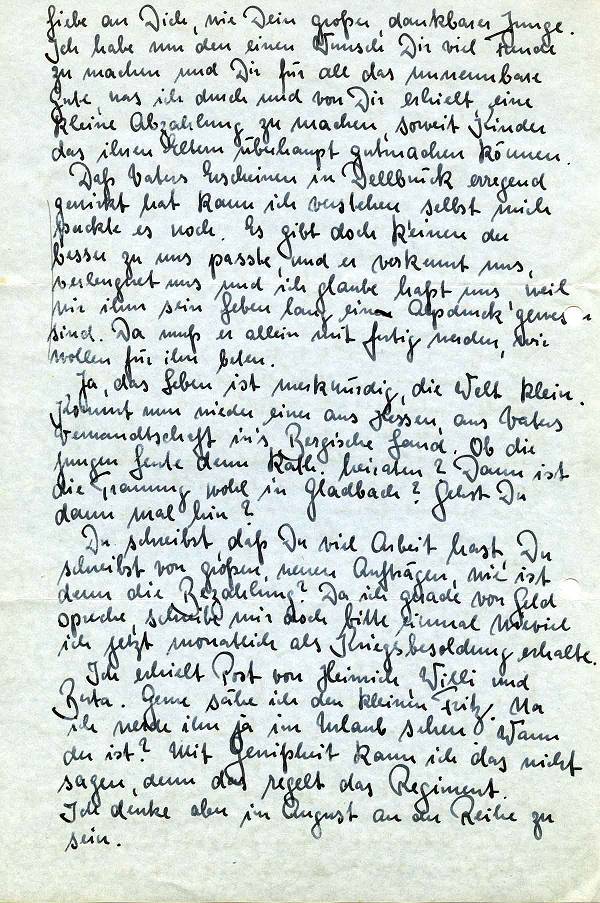 Liebe an Dich, wie Dein großer, dankbarer Junge.
Ich habe nur den einen Wunsch Dir viel Freude
zu machen und Dir für all das unnennbare
Gute, was ich durch und von Dir erhielt, eine
kleine Abzahlung zu machen, soweit Kinder
das ihren Eltern überhaupt gutmachen können.
Daß Vaters Erscheinen in Dellbrück erregend
gewirkt hat kann ich verstehen, selbst mich
packte es noch. Es gibt doch keinen der
besser zu uns passte, und er verkennt uns,
verleugnet uns und, ich glaube haßt uns, weil
wir ihm sein Leben lang ein Alpdruck gewesen
sind. Da muß er allein mit fertig werden, wir
wollen für ihn beten.
Ja, das Leben ist merkwürdig, die Welt klein.
Kommt nun wieder einer aus Hessen, aus Vaters
Verwandtschaft in's Bergische Land. Ob die
jungen Leute denn kath. heiraten? Dann ist
die Trauung wohl in Gladbach? Gehst Du
dann mal hin?
Du schreibst, daß Du viel Arbeit hast, Du
schreibst von großen, neuen Aufträgen, wie ist
denn die Bezahlung? Da ich gerade von Geld
spreche, schreibe mir doch bitte einmal wieviel
ich jetzt monatlich als Kriegsbesoldung erhalte.
Ich erhielt Post von Heinrich, Willi und
Berta. Gerne sähe ich den kleinen Fritz. Na
ich werde ihn ja im Urlaub sehen. Wann
der ist? Mit Gewißheit kann ich das nicht
sagen, denn das regelt das Regiment.
Ich denke aber im August an der Reihe zu
sein.